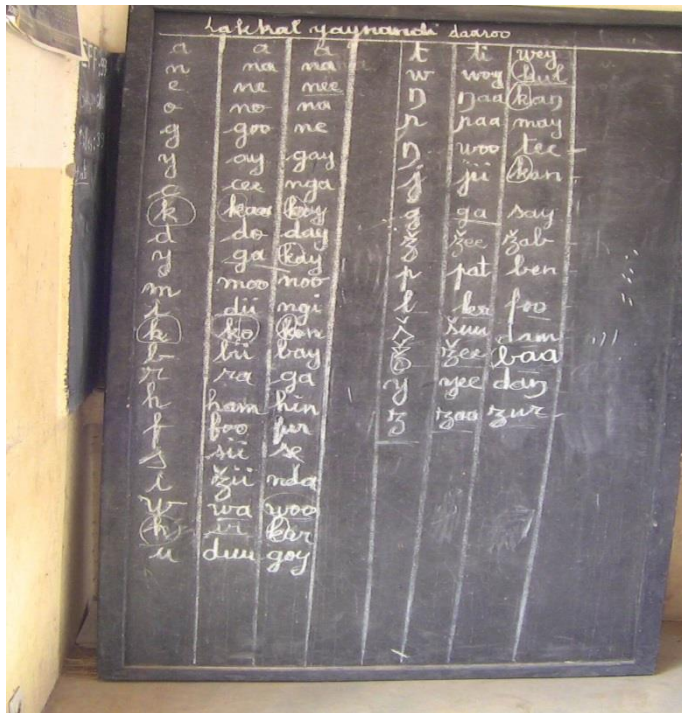 Lakkal yaynandi daaroo
a a a
n na na
e ne nee
o no na
g goo ne
y ay gay
c cee nga
k kaa koy
d do day
y ga kay
m moo noo
i dii ngi
k ko kon
b bii bay
r ra ga
h ham hin
f foo fur
s sii se
i žii nda
w wa woo
h kar
u duu goy
t ti wey
w woy
ŋ ŋaa kan
p paa may
ŋ woo tee
j jii kan
g ga say
ž žee žab
p pat ben
l foo
žuu
žee baa
y yee daŋ
z zaa zur